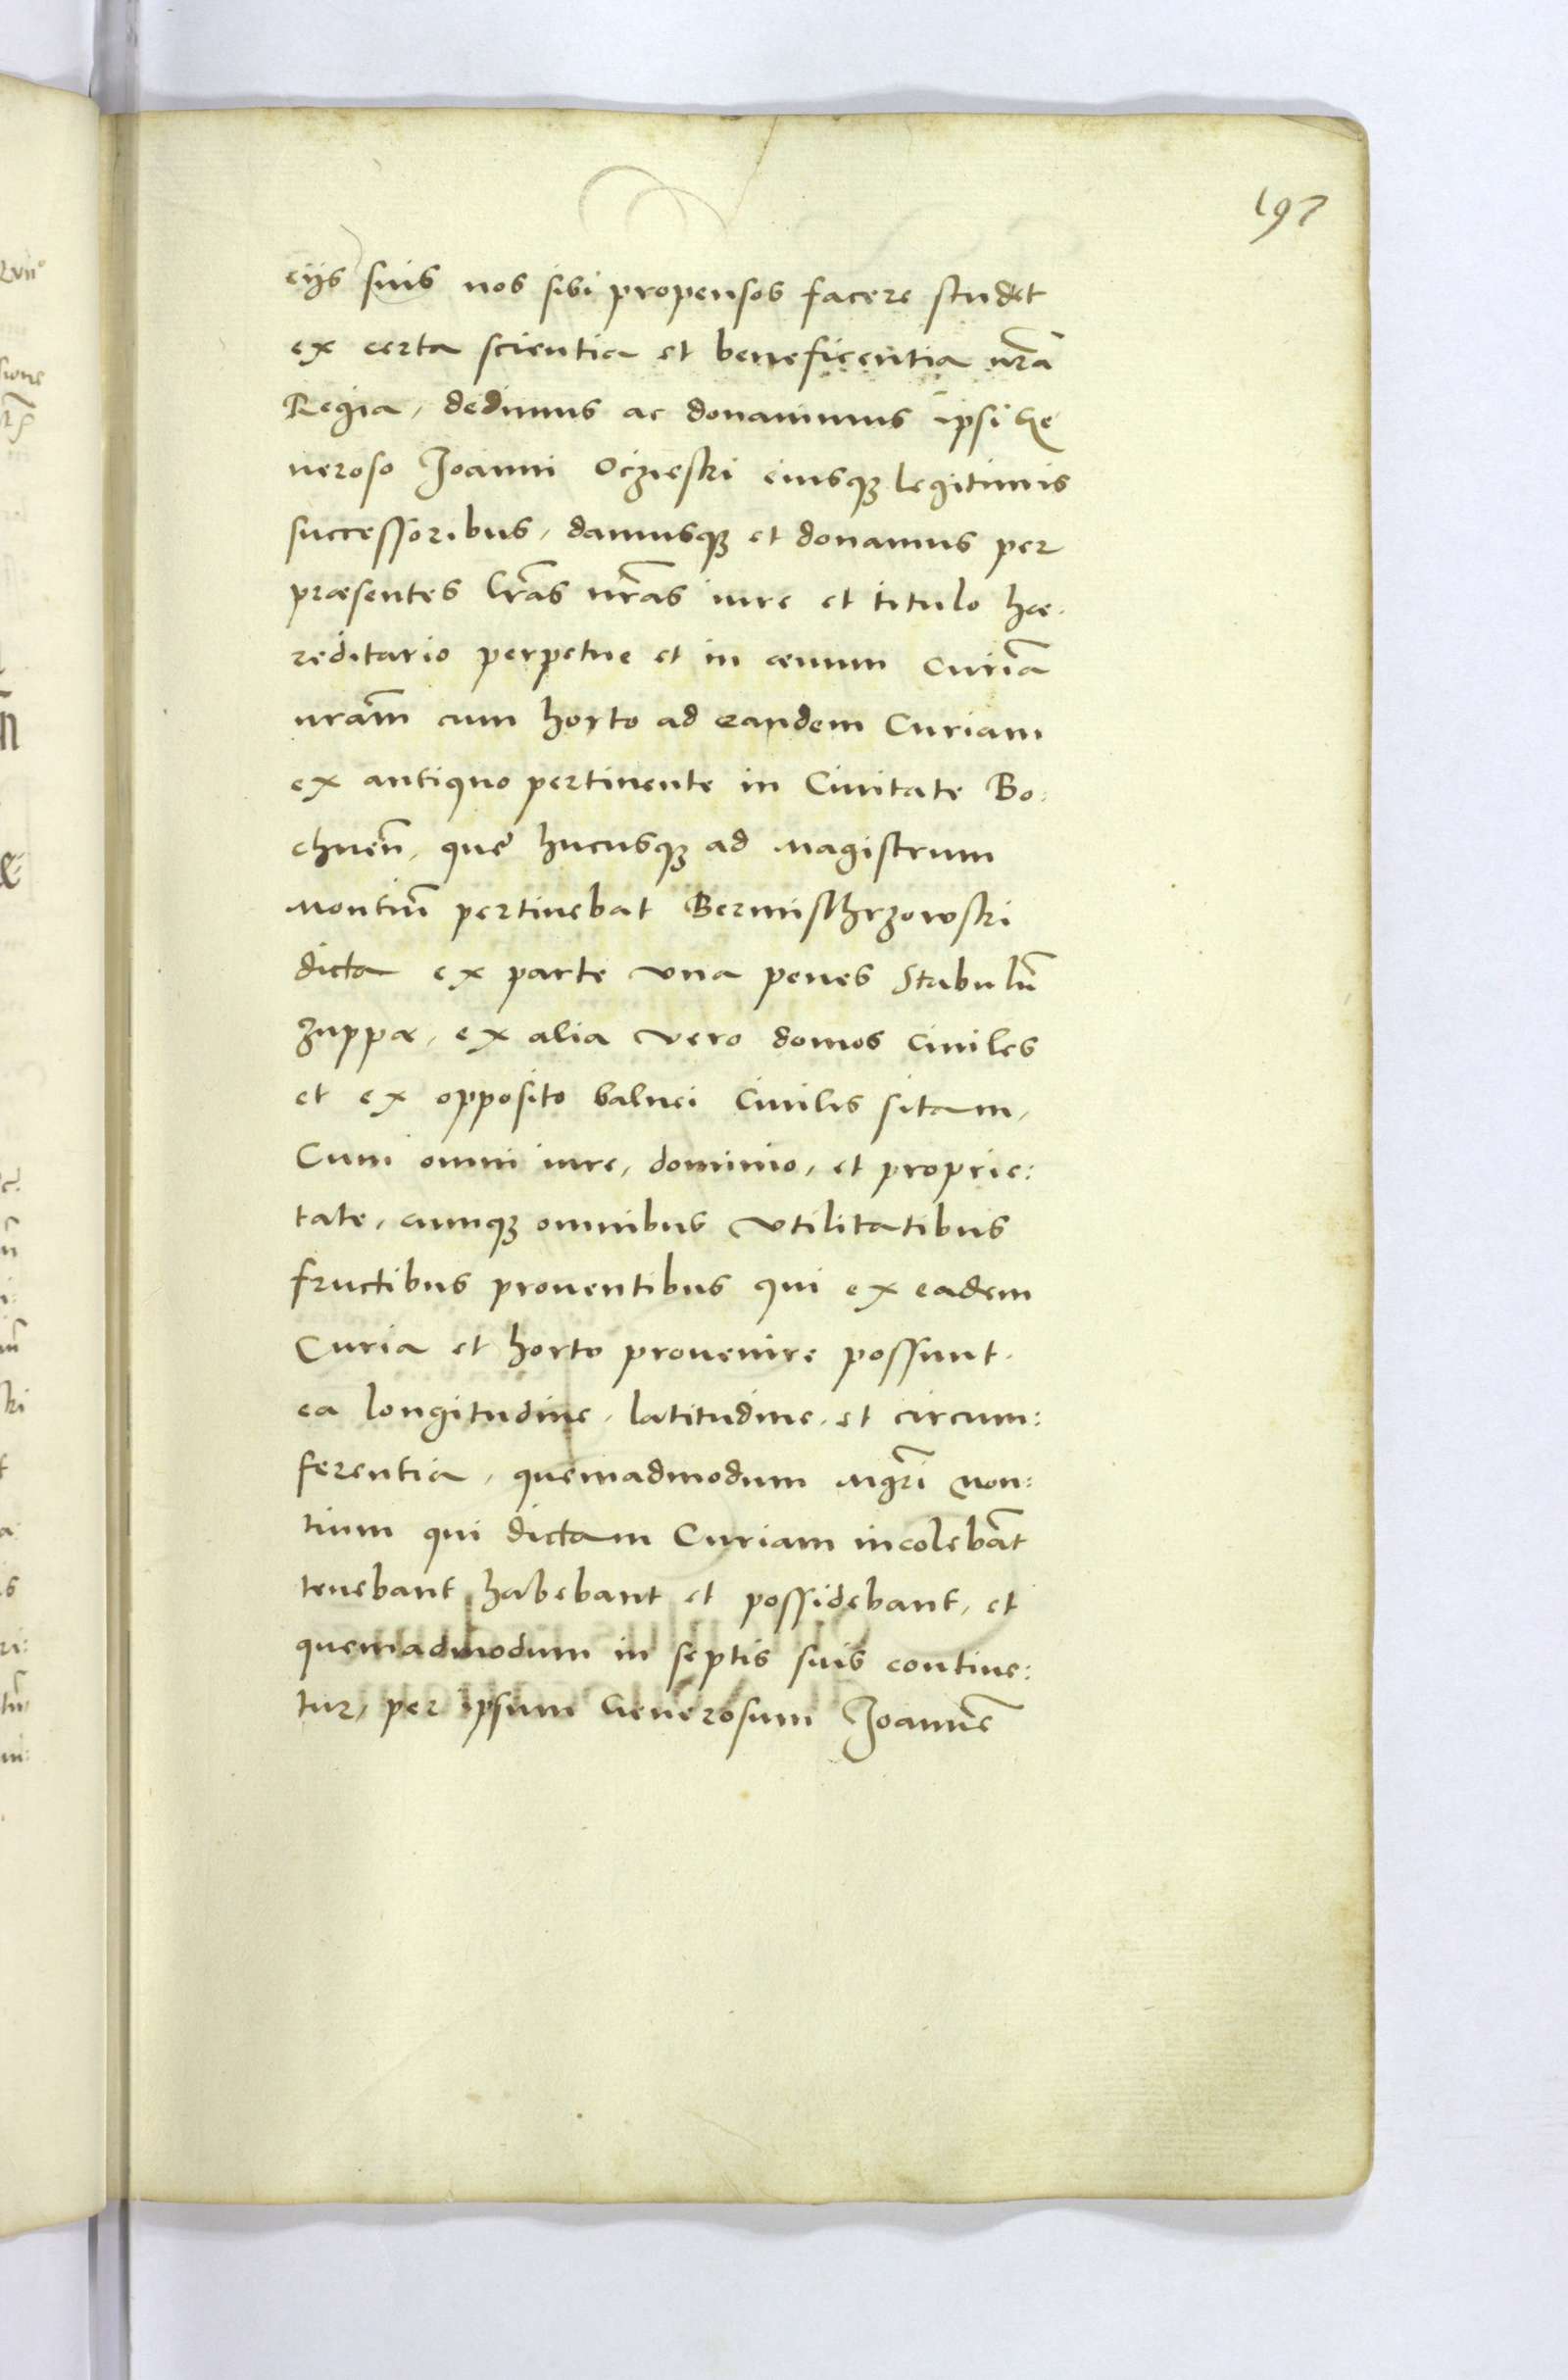 197
cijs suis nos sibi propensos facere studet
ex certa scientia et beneficentia nr̃a
Regia, dedimus ac donauimus ipsi Ge
neroso Joanni Oczieski eiusq3 legitimis
successoribus, damusq3 et donamus per
præsentes lr̃as nr̃as iure et titulo hæ.
reditario perpetue et in æuum Curiã
nram̃ cum horto ad eandem Curiam
ex antiquo pertinente in Ciuitate Bo:
chneñ, quę hucusq3 ad Magistrum
Montiũ pertinebat
dicta ex parte vna penes Stabulũ
Zuppæ, ex alia vero domos Ciuiles
et ex opposito balnei Ciuilis sitam,
Cum omni iure, dominio, et proprie:
tate, cumq3 omnibus vtilitatibus
fructibus prouentibus qui ex eadem
Curia et horto prouenire possunt.
ea longitudine, latitudine, et circum:
ferentia, quemadmodum Mgr̃i Mon:
tium qui dictam Curiam incolebãt
tenebant habebant et possidebant, et
quemadmodum in septis suis contine:
tur, per ipsum Generosum Joannẽ